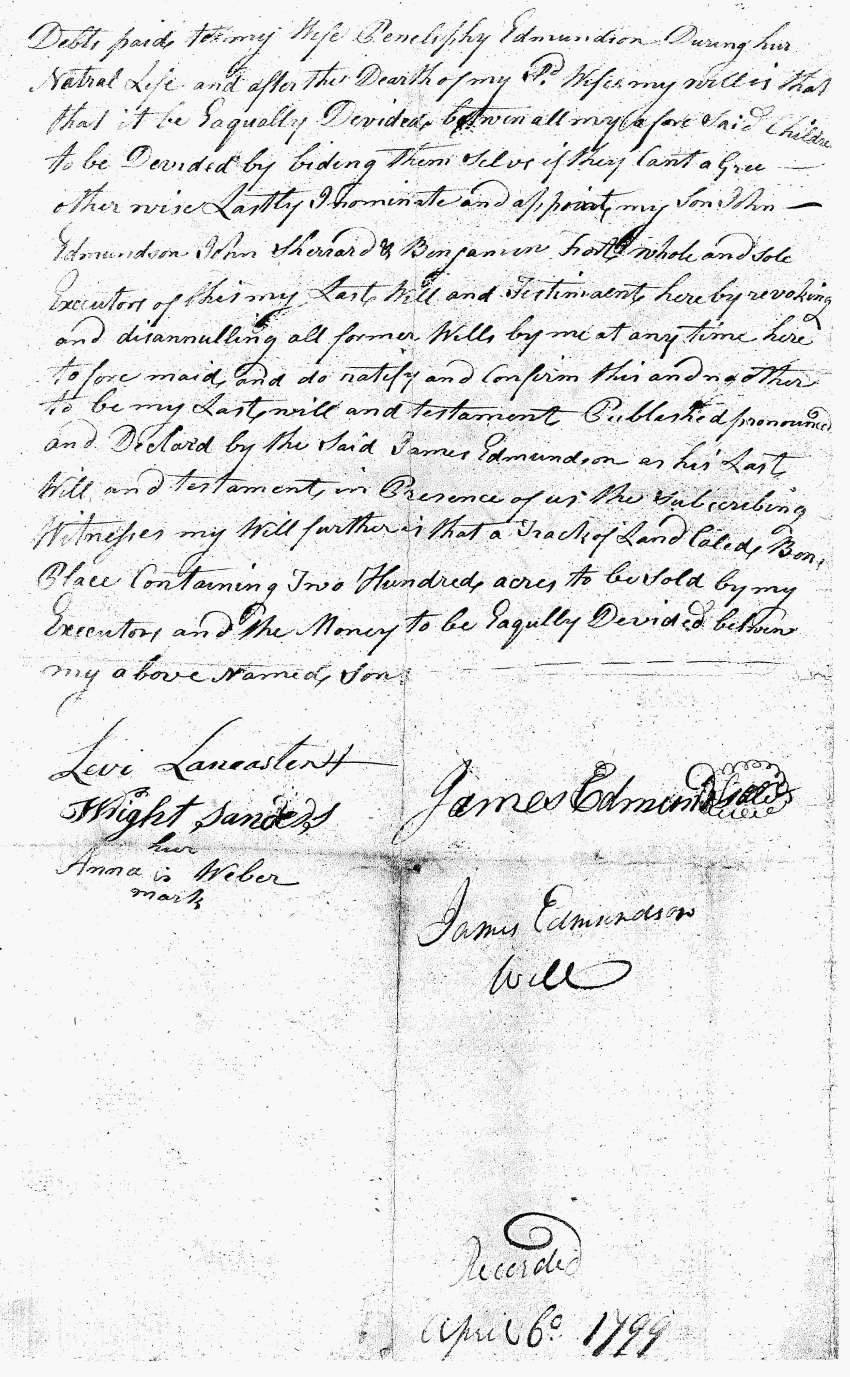 Debts paid, to my Wife Peneliphy Edmundson During hur
Natral Life and after the Dearth of my Sd. Wife my will is that
that it be Eaqually Devided, betwin all my afore Said Childre
to be Devided by biding them Selve if they Cant aGree —
other wise Lastly I nominate and appoint, my Son John —
Edmundson John Sherrard & Benjamin whole and Sole
Executors of this my Last, Will and Testiment, here by revoking
and disannulling all former Wills by me at any time here
to fore maid, and do ratify and Confirm this and no other
to be my Last, will and testament, Published pronounced
and Declard by the Said James Edmundson as his Last,
Will and testament, in Presence of us the Subscribing
Witnesses my Will further is that a Track of Land Caled, Bon,
Place Containing Two Hundred, acres to be Sold by my
Executors and the Money to be Eaqully Devided betwen
my above Named, Son
Levi Lancaster
Wright Sanders
hur
Anna is Weber
mark
James Edmundson
James Edmundson
Will
Recorded
April 6o. 1799